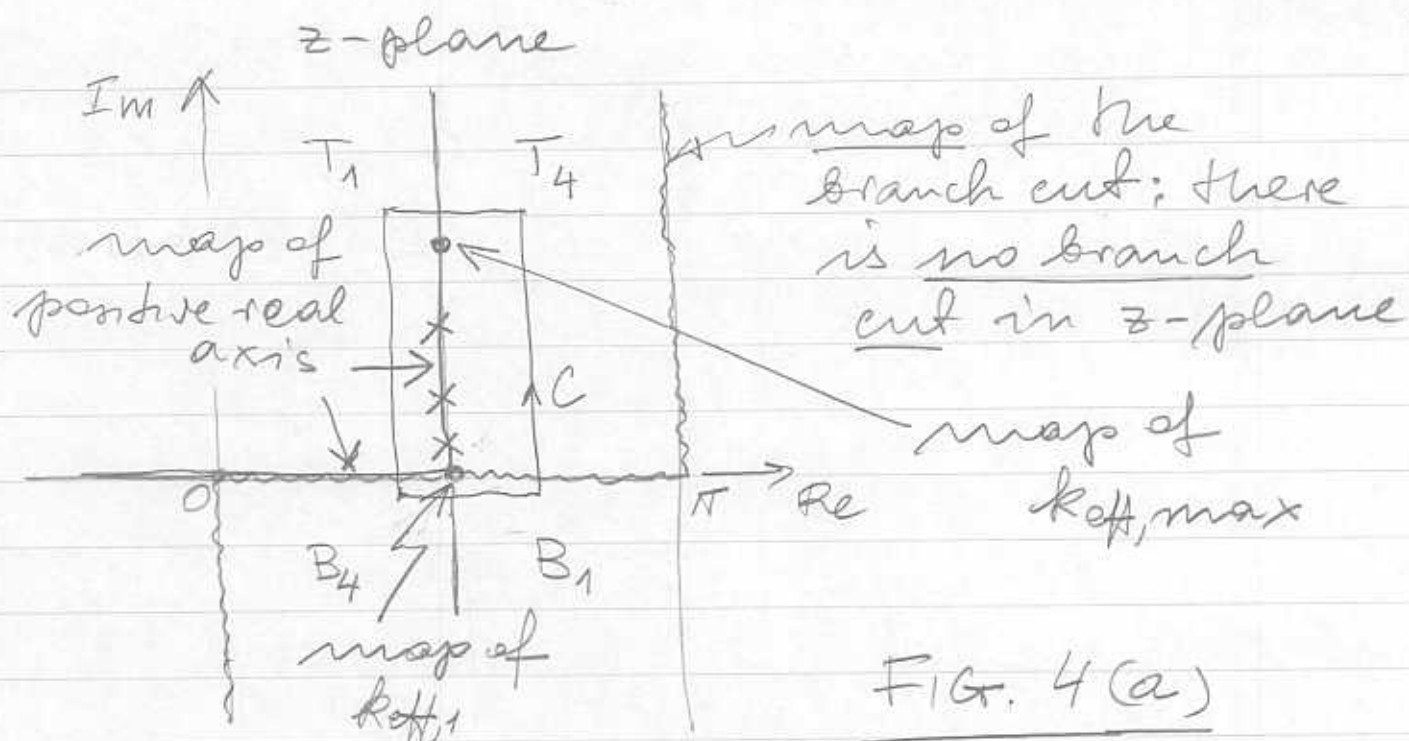 z-plane
Im
T1 T4
map of the
branch cut: there
is no branch
cut in z-plane
map of
positive real
axis
C
map of
keff,max
O
π Re
B4 B1
map of
keff,1
FIG. 4(a)